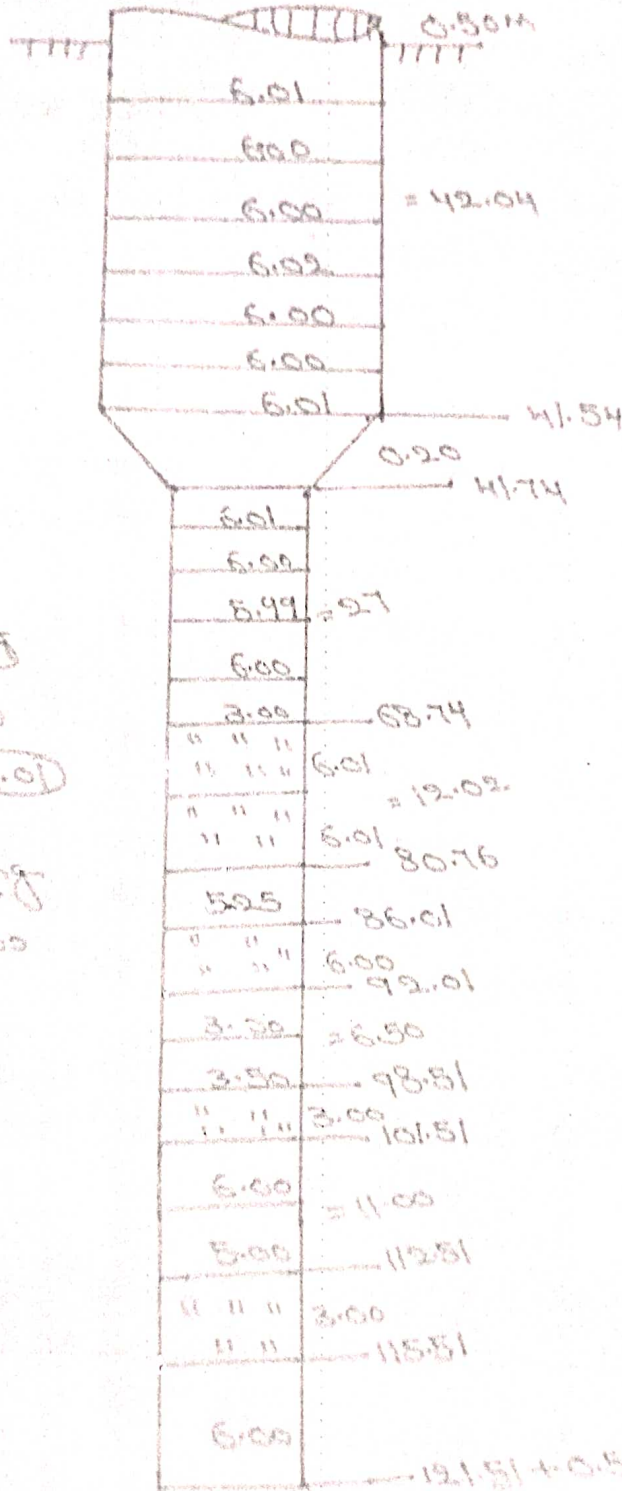 0.50m
6.01
6.00
6.00
= 42.04
6.02
6.00
6.00
6.01
41.54
0.20
41.74
6.01
6.00
5.99 = 27
6.00
3.00
68.74
" " "
" " " 6.01
= 12.02
" " "
" " 6.01
80.76
5.25
86.01
" "
" " " 6.00
92.01
= 6.50
3.50
98.51
" " 3.00
101.51
6.00
= 11.00
5.00
112.51
" " " 3.00
" "
115.51
6.00
121.51 + 0.5